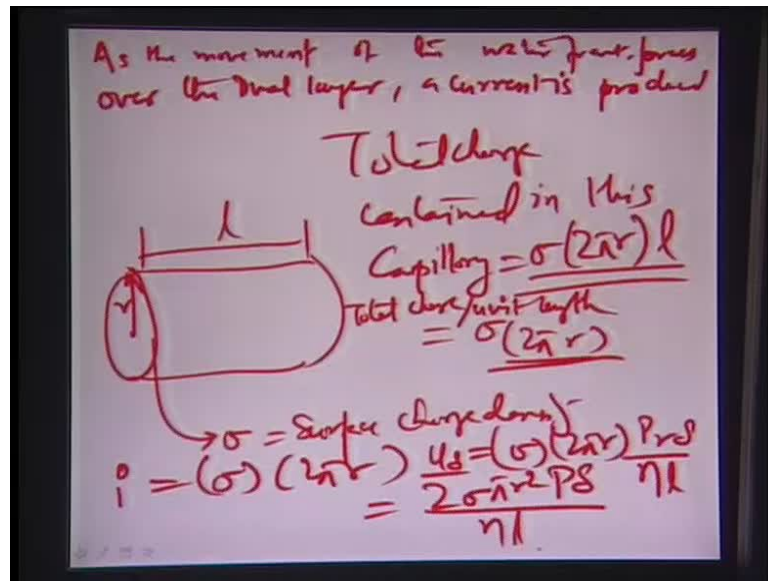 As the movement of the water front forces
over the Dual layer, a current is produced
Total charge
contained in this
l
Capillary = σ(2πr)l
r
Total charge/unit length
= σ(2πr)
σ = Surface charge density
i = (σ)(2πr) uδ = (σ)(2πr) Prδ/ηl
= 2σπr²Pδ/ηl